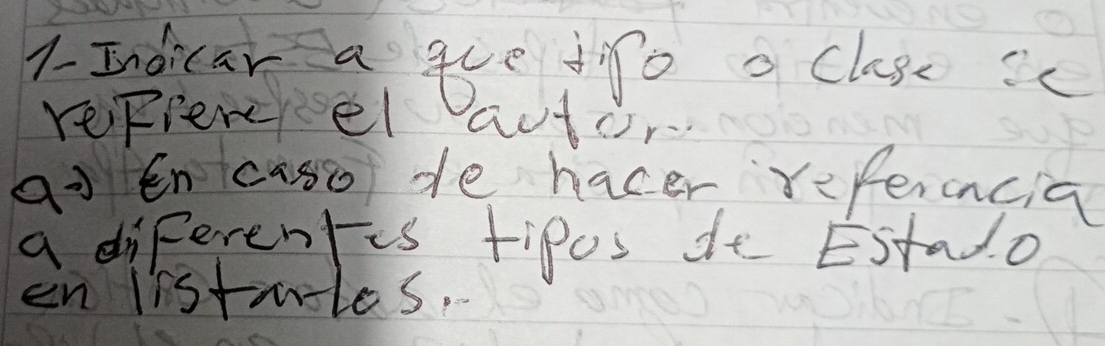 1- Indicar a que tipo o clase se
refiere el autor.
a-) En caso de hacer referencia
a diferentes tipos de Estado
en listarlos.-